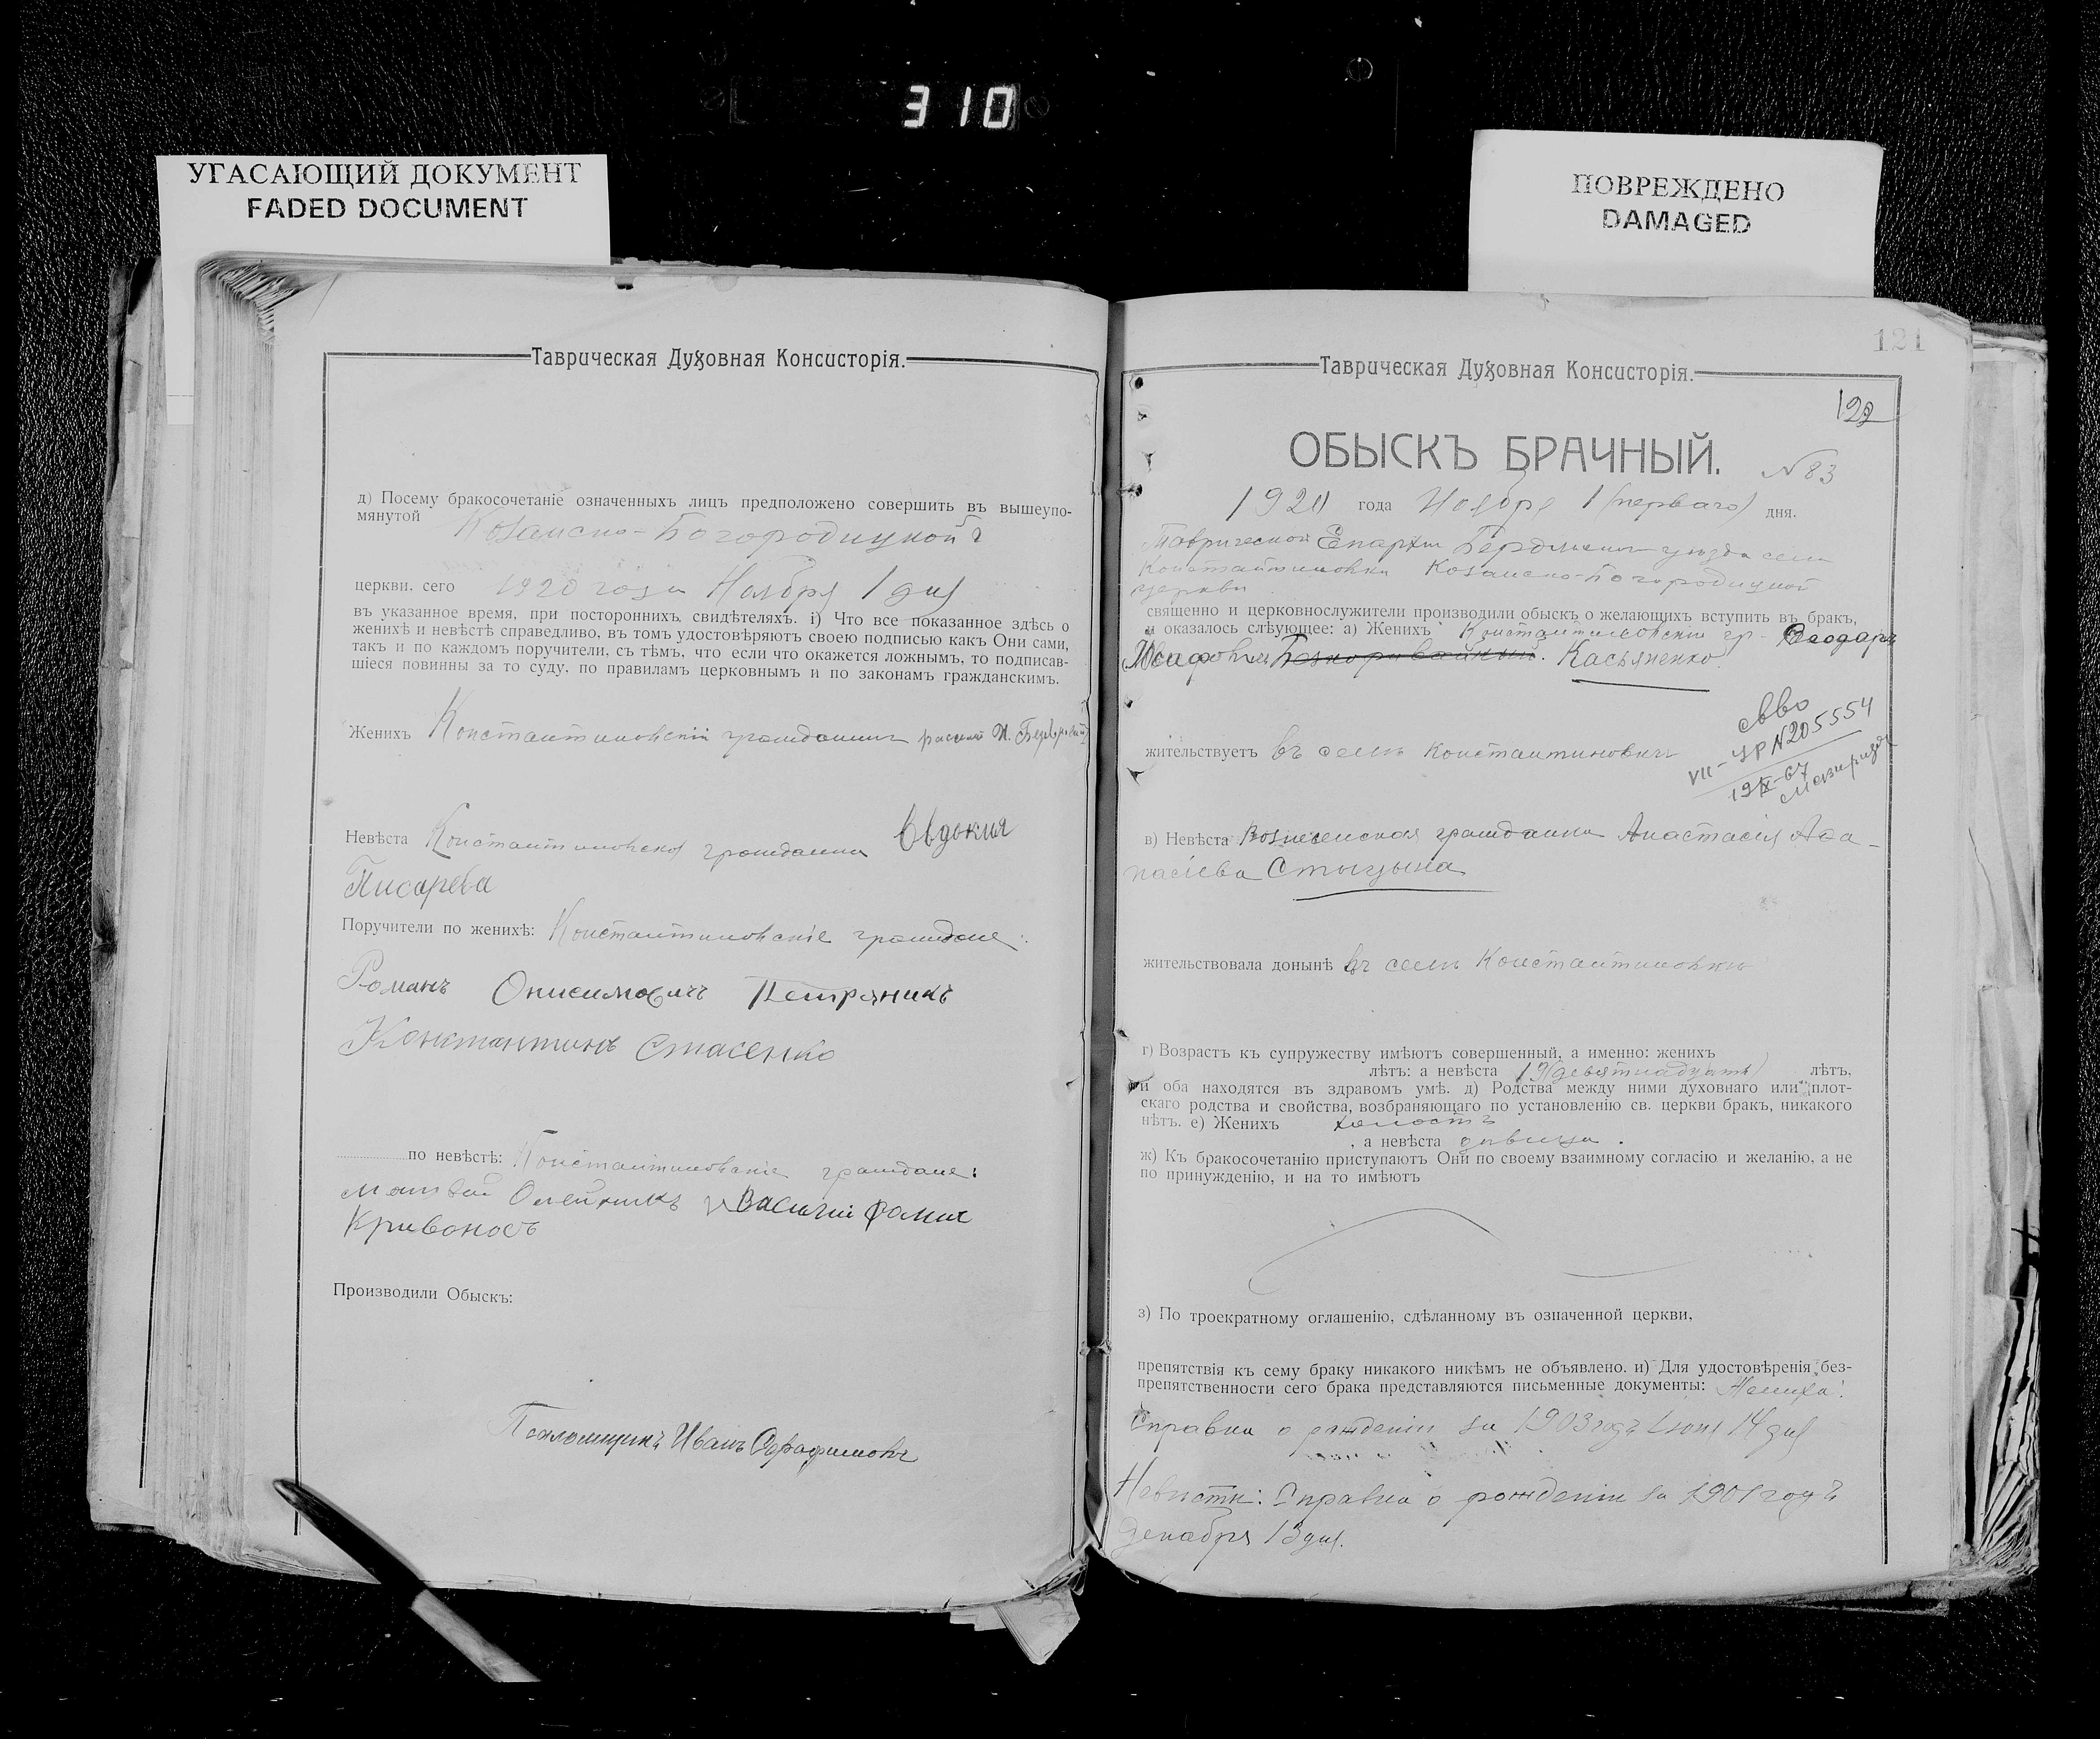 310
УГАСАЮЩИЙ ДОКУМЕНТ
FADED DOCUMENT
ПОВРЕЖДЕНО
DAMAGED
Таврическая Духовная Консисторія.
д) Посему бракосочетаніе означенныхъ лицъ предположено совершить въ вышеупо-
мянутой Козанско-Богородицкой
церкви. сего 1920 года Ноября 1 дня
въ указанное время, при постороннихъ свидѣтеляхъ. і) Что все показанное здѣсь о
женихѣ и невѣстѣ справедливо, въ томъ удостовѣряютъ своею подписью какъ Они сами,
такъ и по каждомъ поручители, съ тѣмъ, что если что окажется ложнымъ, то подписав-
шіеся повинны за то суду, по правиламъ церковнымъ и по законамъ гражданскимъ.
Женихъ Константиновскій гражданинъ
Невѣста Константиновская гражданка Евдокия
Писарева
Поручители по женихѣ: Константиновскіе граждане:
Романъ Онисимовичъ Петряникъ
Константинъ Стасенко
по невѣстѣ: Константиновскіе граждане:
Матвей Олейникъ и Василий Фомич
Кривоносъ
Производили Обыскъ:
Псаломщикъ Иванъ Серафимовъ
121
Таврическая Духовная Консисторія.
122
ОБЫСКЪ БРАЧНЫЙ. N 83
1920 года Ноября 1 (перваго) дня.
Таврической Епархіи Бердянскаго уѣзда села
Константиновки Козанско-Богородицкой
церкви
священно и церковнослужители производили обыскъ о желающихъ вступить въ бракъ,
и оказалось слѣующее: а) Женихъ Константиновскій гр. Феодаръ
Касьяненко.
свво
VII-УР N205554
жительствуетъ въ селѣ Константиновки
19 IX-67
в) Невѣста Вознесенская гражданка Анастасія Аѳа-
насіева Стыцына
жительствовала донынѣ въ селѣ Константиновки
г) Возрастъ къ супружеству имѣютъ совершенный, а именно: женихъ
лѣтъ: а невѣста 19 (девятнадцать) лѣтъ,
и оба находятся въ здравомъ умѣ. д) Родства между ними духовнаго или плот-
скаго родства и свойства, возбраняющаго по установленію св. церкви бракъ, никакого
нѣтъ. е) Женихъ холостъ
, а невѣста дѣвица.
ж) Къ бракосочетанію приступаютъ Они по своему взаимному согласію и желанію, а не
по принужденію, и на то имѣютъ
з) По троекратному оглашенію, сдѣланному въ означенной церкви,
препятствія къ сему браку никакого никѣмъ не объявлено. и) Для удостовѣренія без-
препятственности сего брака представляются письменные документы: Жениха:
Справка о рожденіи за 1903 годъ Іюня 14 дня
Невѣсты: Справка о рожденіи за 1901 годъ
Декабря 13 дня.